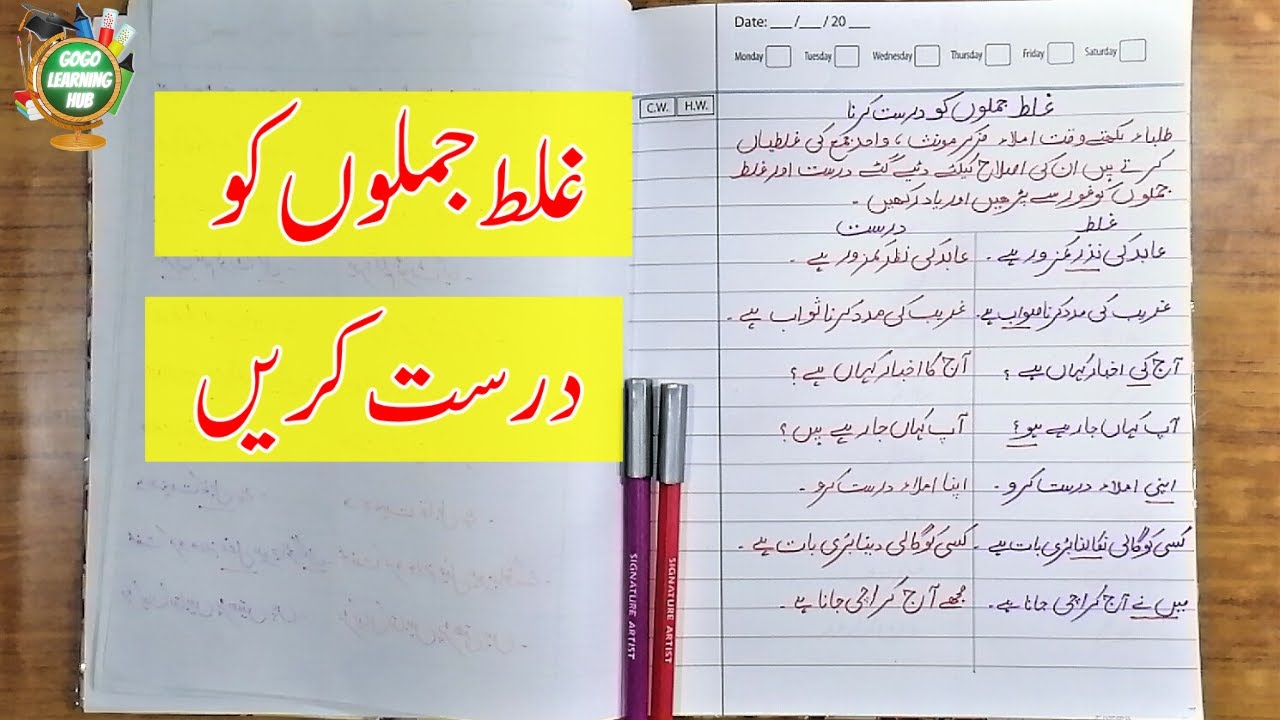 GOGO
LEARNING
HUB
غلط جملوں کو
درست کریں
Date: ___ /___ / 20 ___
Monday Tuesday Wednesday Thursday Friday Saturday
C.W. H.W.
غلط جملوں کو درست کرنا
طلباء لکھتے وقت املاء مذکر مونث ، واحد جمع کی غلطیاں
کرتے ہیں ان کی اصلاح کیلئے دئیے گئے درست اور غلط
جملوں کو غور سے پڑھیں اور یاد رکھیں ۔
غلط درست
عابد کی نذر کمزور ہے ۔ عابد کی نظر کمزور ہے ۔
غریب کی مدد کرنا صواب ہے۔ غریب کی مدد کرنا ثواب ہے ۔
آج کی اخبار کہاں ہے ؟ آج کا اخبار کہاں ہے ؟
آپ کہاں جا رہے ہو ؟ آپ کہاں جا رہے ہیں ؟
اپنی املاء درست کرو ۔ اپنا املاء درست کرو ۔
کسی کو گالی نکالنا بڑی بات ہے ۔ کسی کو گالی دینا بڑی بات ہے ۔
میں نے آج کراچی جانا ہے ۔ مجھے آج کراچی جانا ہے ۔
SIGNATURE ARTIST
SIGNATURE ARTIST